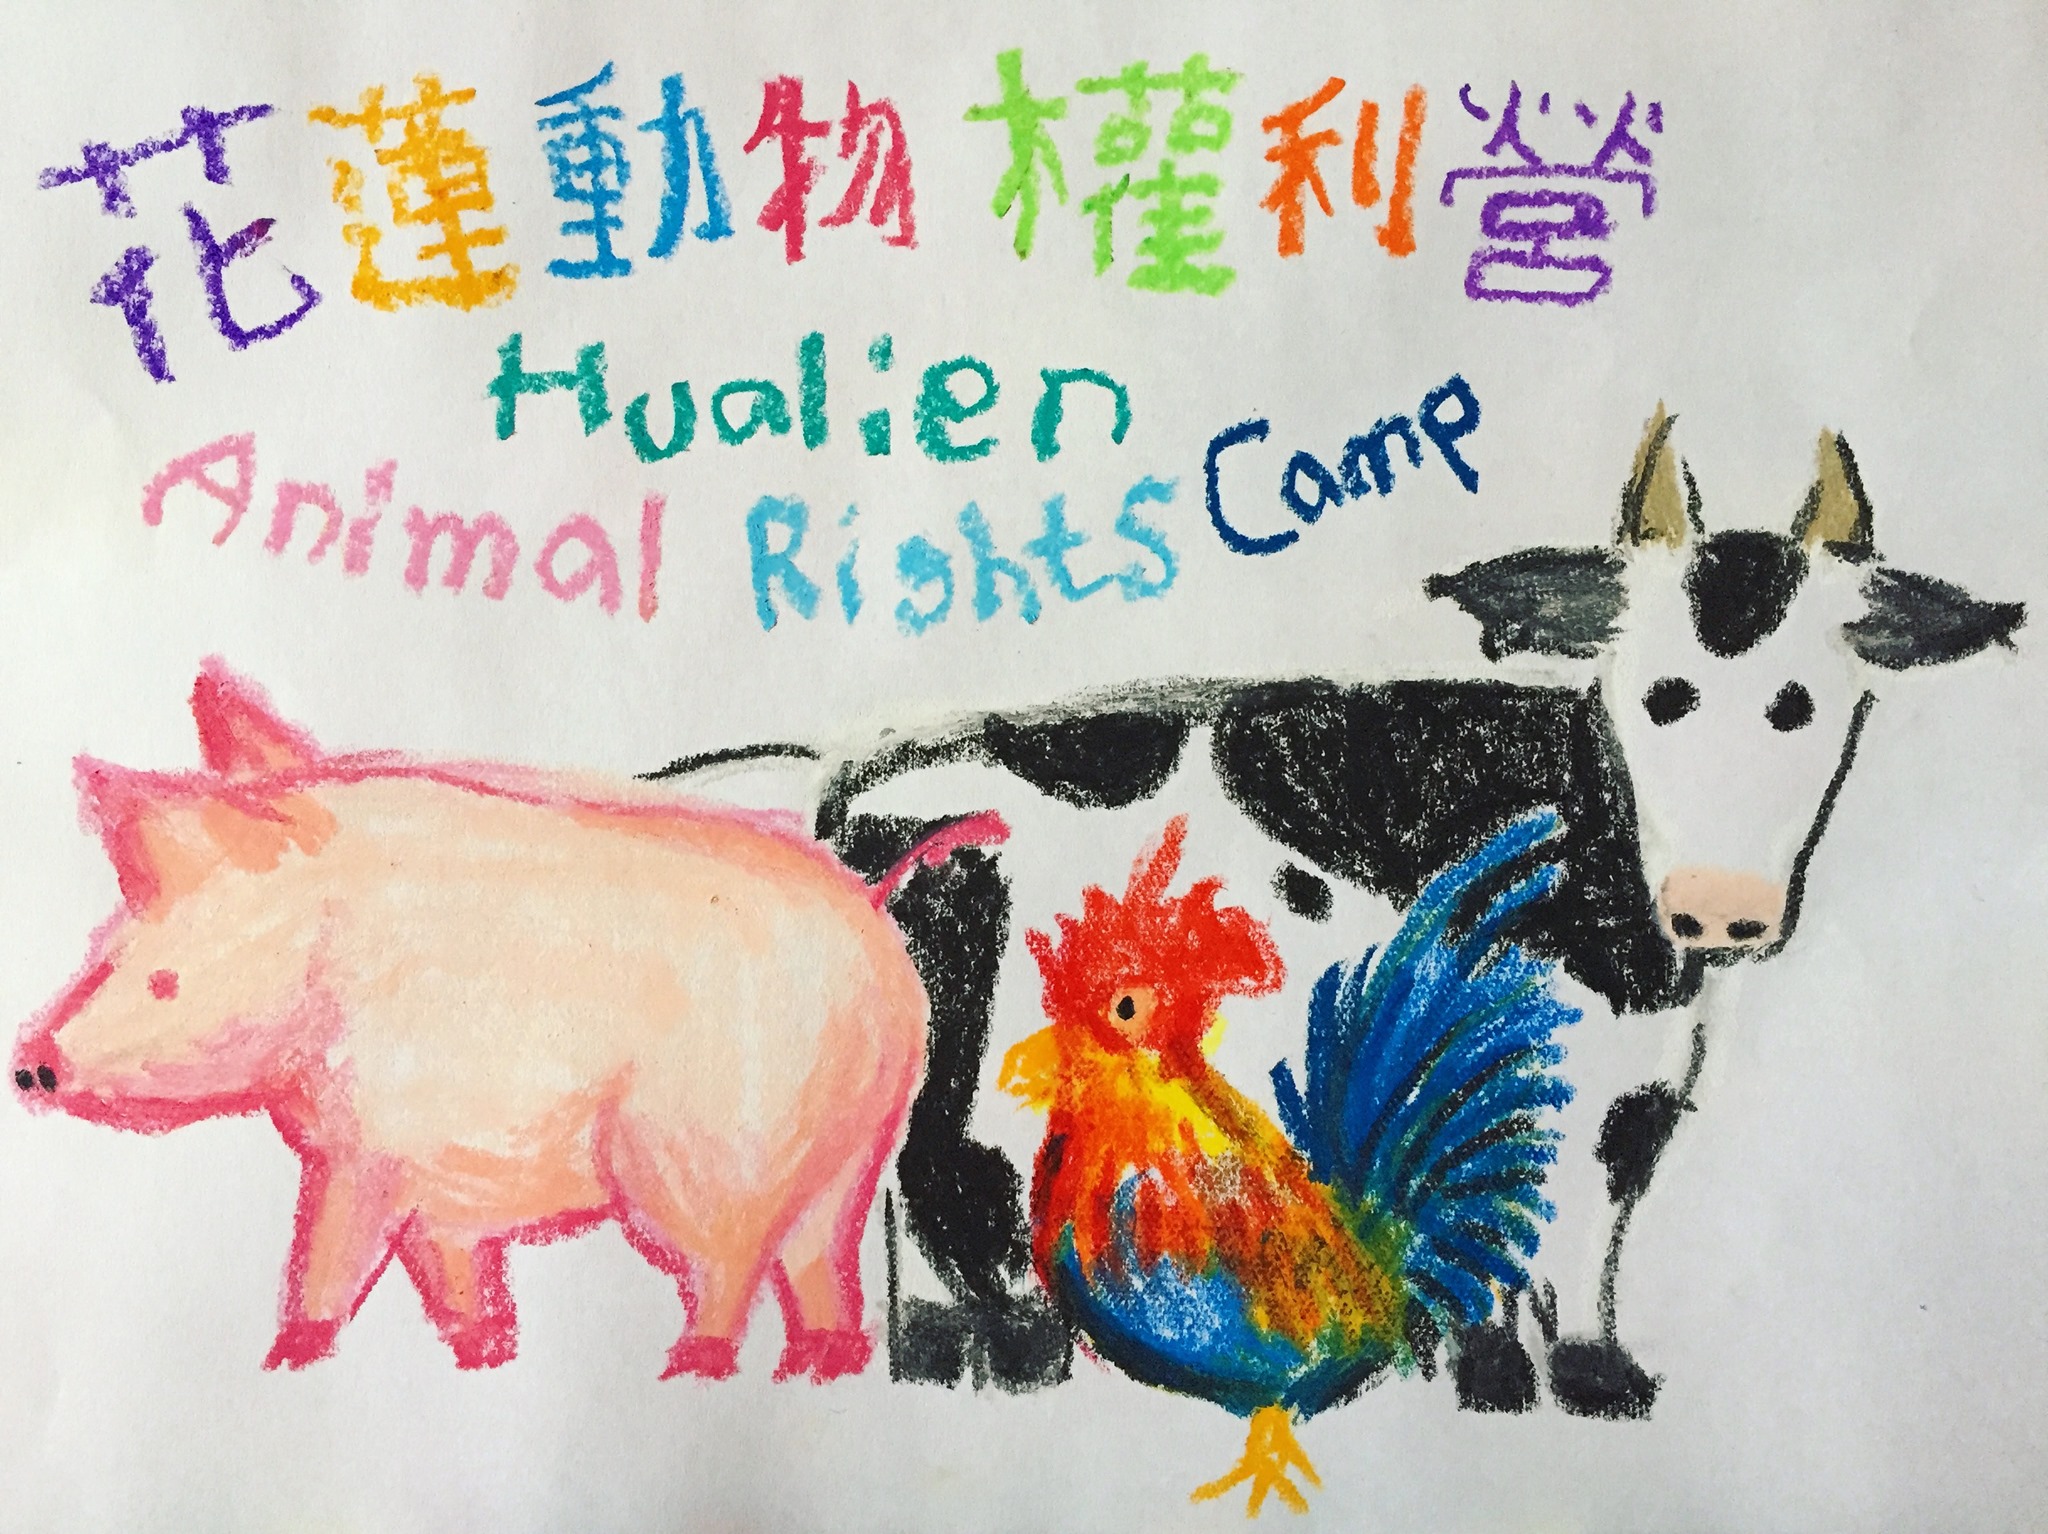 花蓮動物權利營
Hualien
Animal Rights Camp